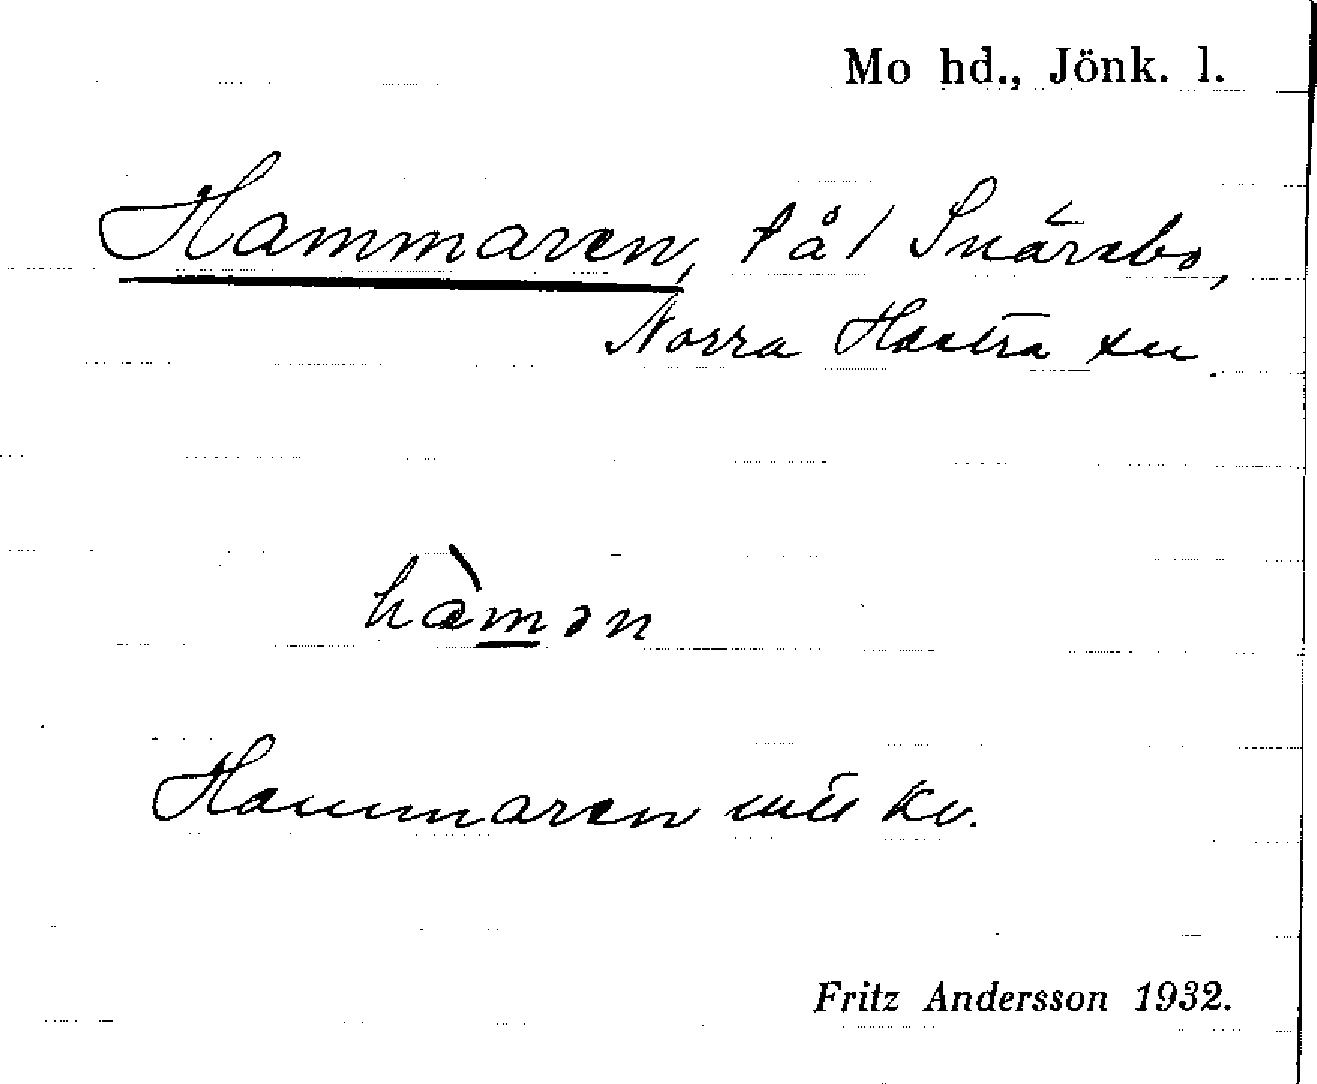 Mo hd., Jönk. l.
Hammaren, på Snärsbo,
Norra Hestra sn.
hàmən
Hammaren kv.
Fritz Andersson 1932.